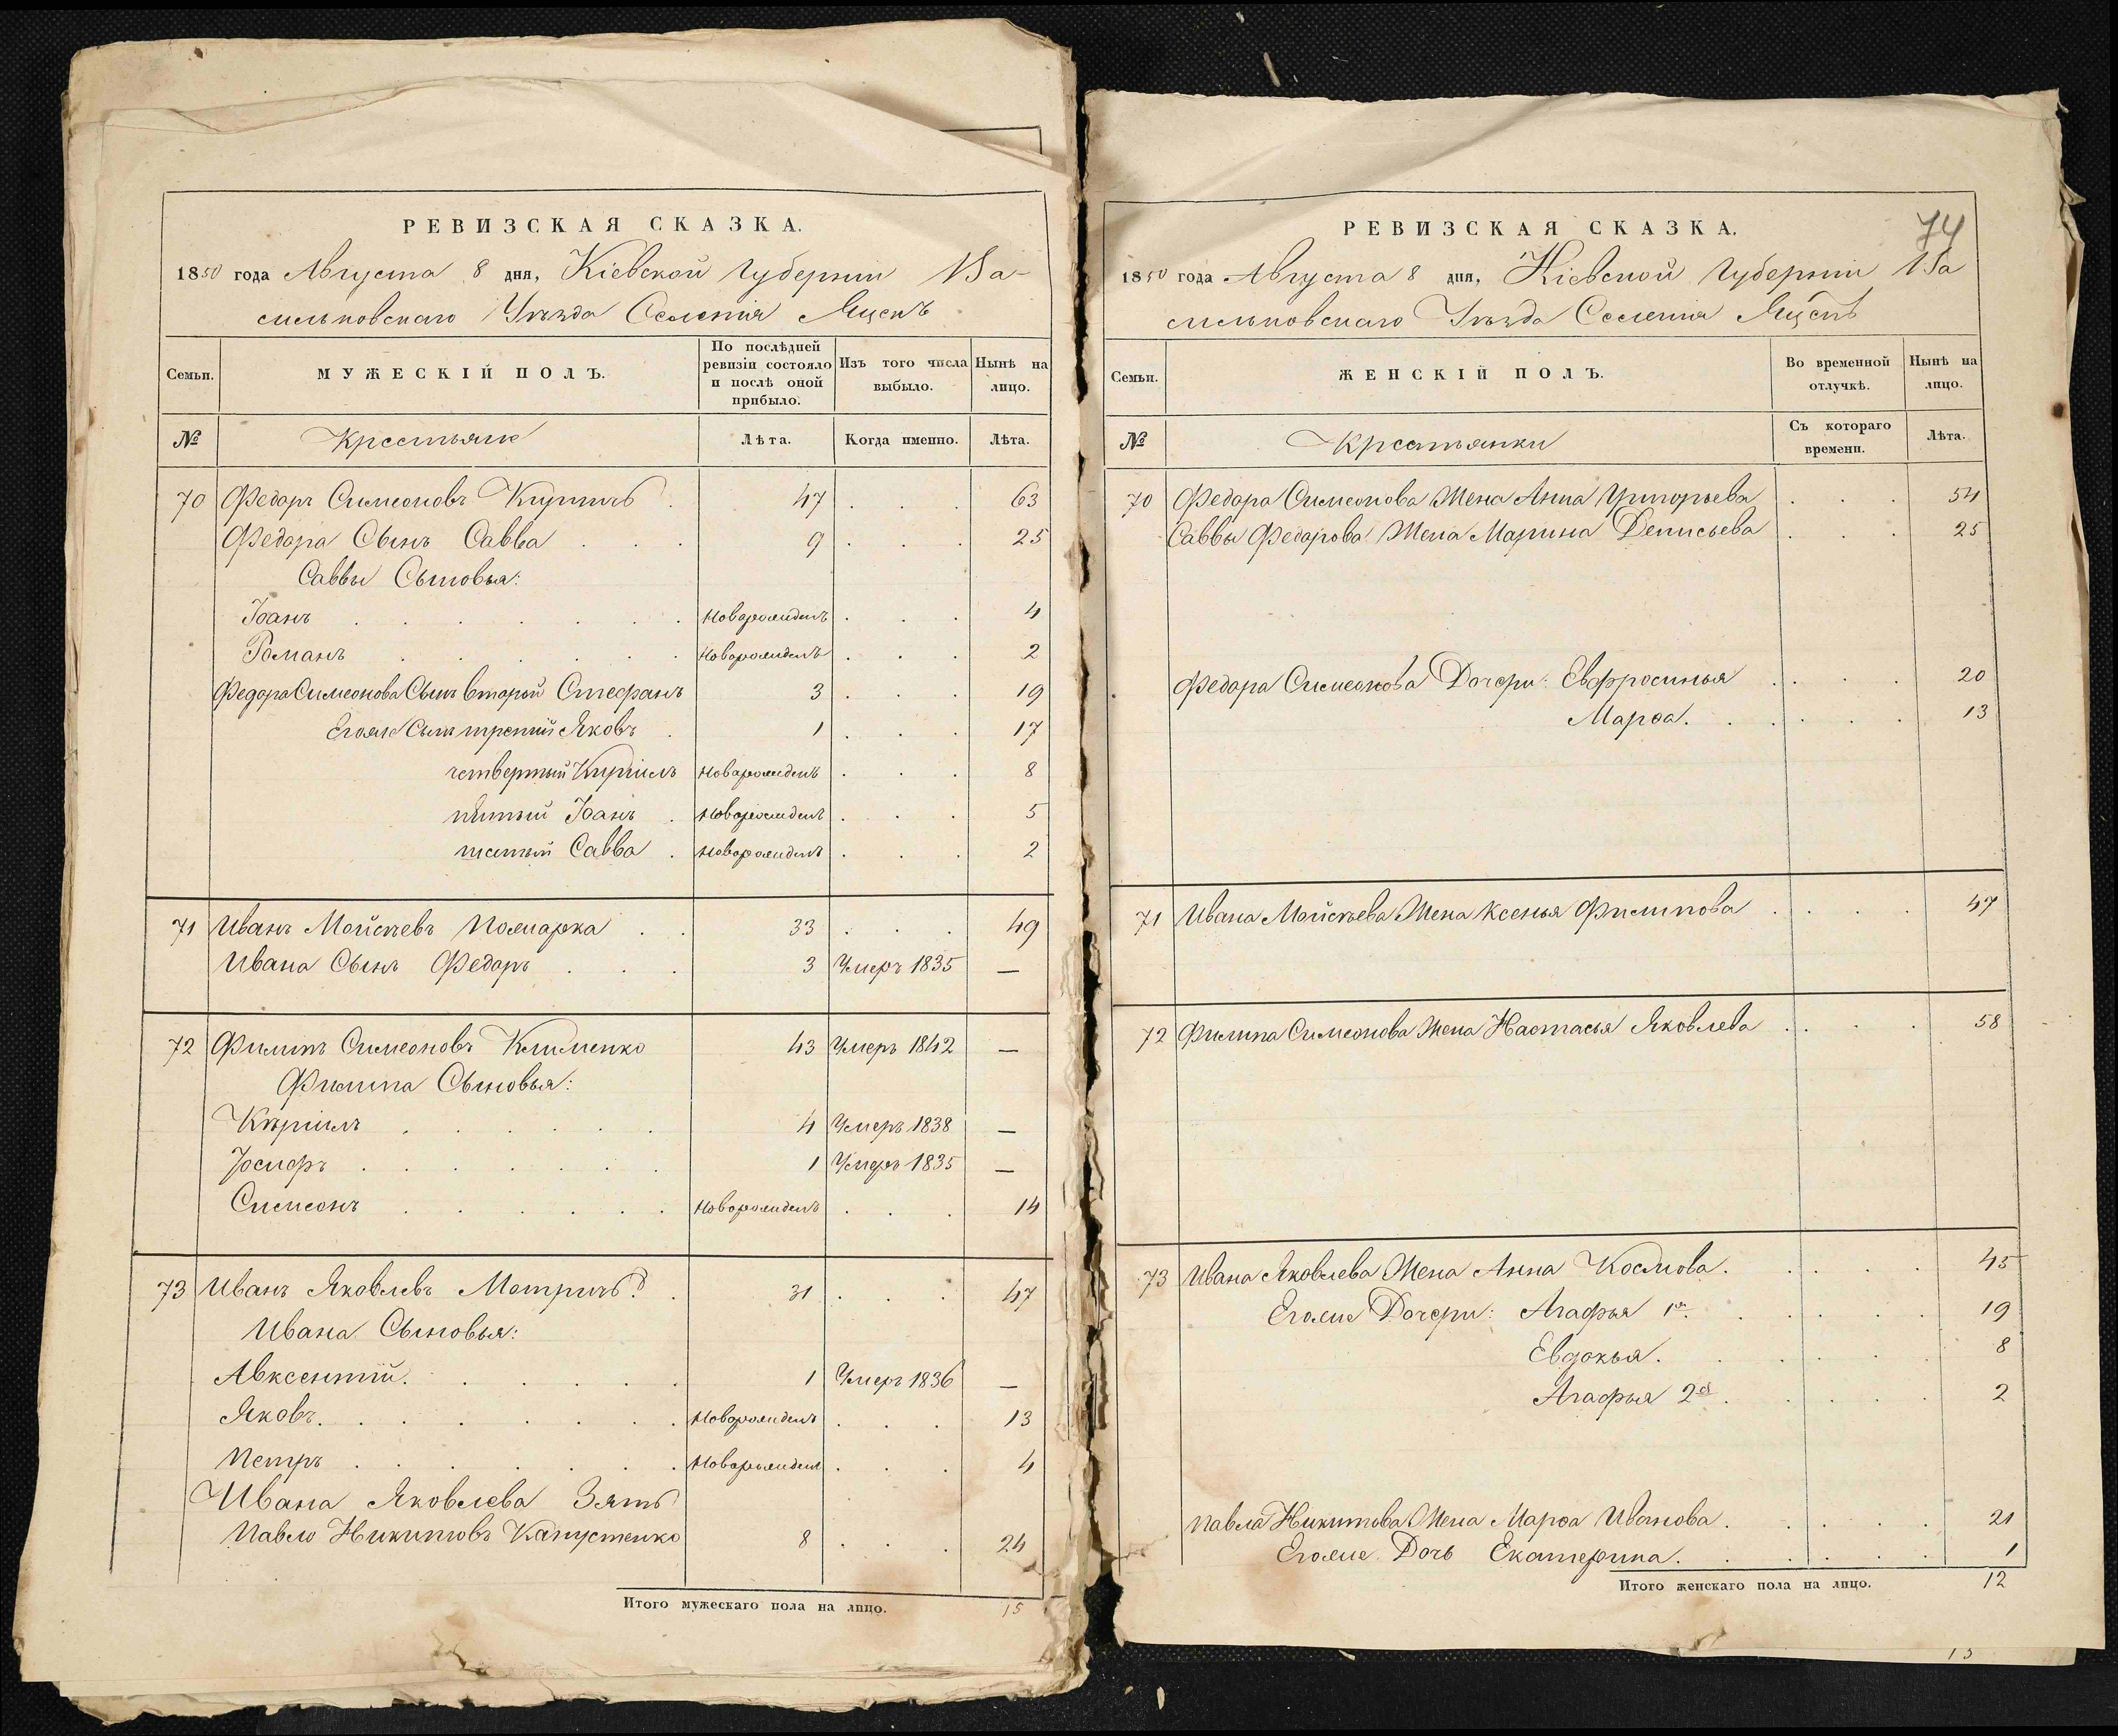 РЕВИЗСКАЯ СКАЗКА.
1850 года Августа 8 дня, Кіевской Губерніи Ва-
сильковскаго Уѣзда Селенія Яцекъ
Семьи.
МУЖЕСКІЙ ПОЛЪ.
По послѣдней ревизіи состояло и послѣ оной прибыло.
Изъ того числа выбыло.
Нынѣ на лицо.
№ Крестьяне Лѣта. Когда именно. Лѣта.
70 Федоръ Симеоновъ 47 . . . 63
Федора Сынъ Савва . . . 9 . . . 25
Саввы Сыновья:
Іоанъ . . . . . . . новорожденъ . . . 4
Романъ . . . . . . новорожденъ . . . 2
Федора Симеонова Сынъ второй Стефанъ 3 . . . 19
Егоже Сынъ третій Яковъ . 1 . . . 17
четвертый Кирилъ новорожденъ . . . 8
пятый Іоанъ . новорожденъ . . . 5
шестый Савва . новорожденъ . . . 2
71 Иванъ Мойсѣевъ Пожарка . . 33 . . . 49
Ивана Сынъ Федоръ . . . 3 Умеръ 1835 —
72 Филипъ Симеоновъ Клименко 43 Умеръ 1842 —
Филипа Сыновья:
Кирилъ . . . . . . 4 Умеръ 1838 —
Іосифъ . . . . . . . 1 Умеръ 1835 —
Симеонъ . . . . . . новорожденъ . . . 14
73 Иванъ Яковлевъ . 31 . . . 47
Ивана Сыновья:
Авксентій. . . . . . . 1 Умеръ 1836 —
Яковъ. . . . . . . . новорожденъ . . . 13
Петръ . . . . . . . новорожденъ . . . 4
Ивана Яковлева Зять
Павло Никитовъ Капустенко 8 . . . 24
Итого мужескаго пола на лицо. 15
74
РЕВИЗСКАЯ СКАЗКА.
1850 года Августа 8 дня, Кіевской Губерніи Ва
сильковскаго Уѣзда Селенія Яцекъ
Семьи.
ЖЕНСКІЙ ПОЛЪ.
Во временной отлучкѣ.
Нынѣ на лицо.
№ Крестьянки Съ котораго времени. Лѣта.
70 Федора Симеонова Жена Анна Григорьева . . . 54
Саввы Федорова Жена Марина Денисьева . . . 25
Федора Симеонова Дочери: Евфросинья . . . . 20
Марѳа. . . . . . 13
71 Ивана Мойсѣева Жена Ксенья Филипова . . . . 47
72 Филипа Симеонова Жена Настасья Яковлева . . . . 58
73 Ивана Яковлева Жена Анна Космова. . . . . 45
Егоже Дочери: Агафья 1я. . . . . . 19
Евдокья. . . . . . 8
Агафья 2я . . . . . 2
Павла Никитова Жена Марѳа Иванова. . . . . 21
Егоже Дочь Екатерина. . . . . . 1
Итого женскаго пола на лицо. 12
13